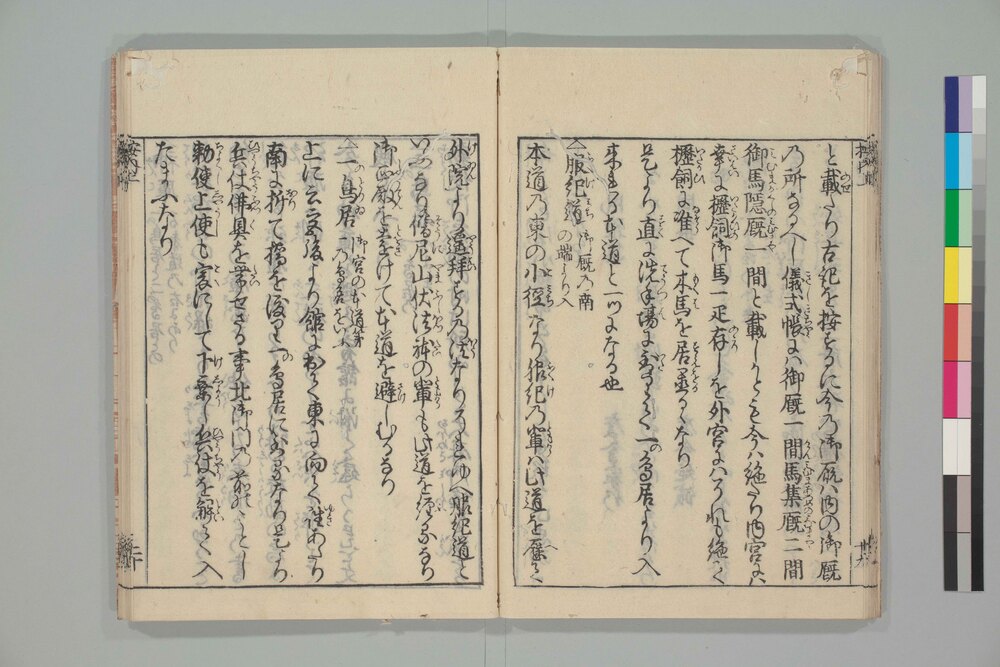 と載たり古記を按するに今の御厩ハ内の御厩
の所なるへし儀式帳にハ御厩一間馬集厩二間
御馬隠厩一間と載しかとも今ハ絶たり内宮にハ
幸に櫪飼御馬一疋存しを外宮にハそれも絶て
櫪飼に准へて木馬を居置るなり
是より直に洗手場にいたりて二の鳥居より入
来れる本道と一つになる也
服紀道 御厩の南の端より入
本道の東の小径なり服紀の輩ハ此道を歴て
外院より遥拝するの法なりこれゆへ服紀道と
いふなり僧尼山伏法躰の輩も此道を経るなり
御正殿を去けて本道を避しむるなり
一鳥居 御宮の本道第一の鳥居をいふ
上に云斎館より東に向て往あたり
南に折て橋を渡り一の鳥居にいるなり是より
兵仗佛具を帯せさる事北御門の前のことし
勅使上使も爰にして下乗し兵仗を解て入
たまふなり